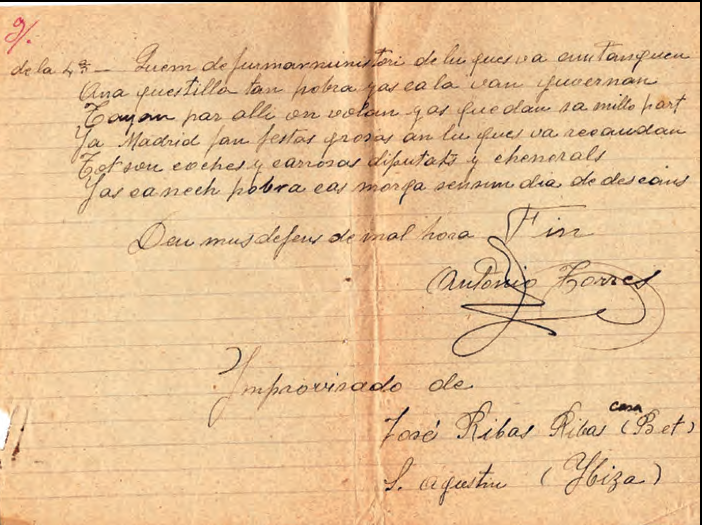 9/.
de la 4ª — Quem de furmarministeri de lu ques va cuntangueu
Ana questilla tan pobra yas ca la van guvernan
Tayan par alli on volan yas quedan sa millo part
Ya Madrid fan festas grosas an lu ques va recaudan
Tot son coches y carrosas diputats y chenerals
Yas canech pobra cas morga sensun dia de descans
Deu mus defens de mal hora Fin
Antonio Torres
Improvisado de
José Ribas Ribas (casa Bet)
S. Agustin (Ybiza)